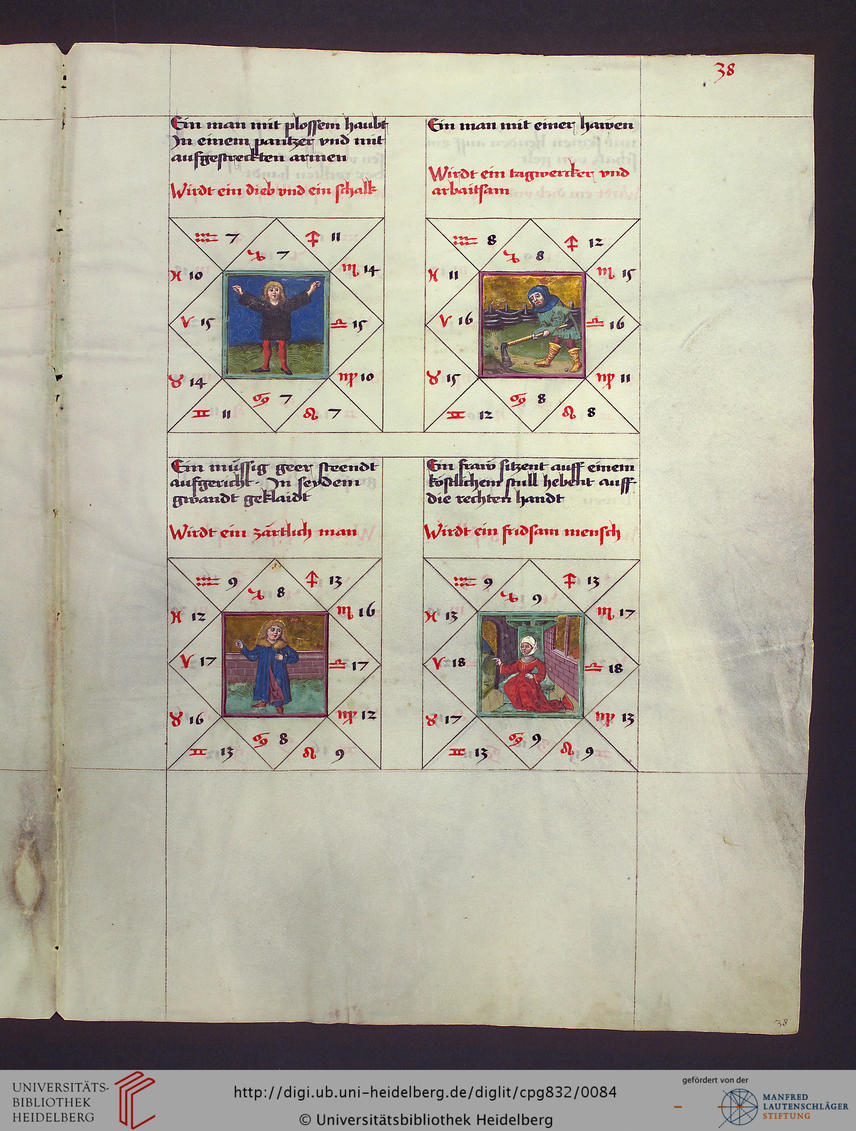 38
Ein man mit plossem haubt
In einem pantzer vnd mit
aufgestreckten armen
Wirdt ein dieb vnd ein schalk
♒ 7
♑ 7
♐ 11
♓ 10
♏ 14
♈ 15
♎ 15
♉ 14
♍ 10
♊ 11
♋ 7
♌ 7
Ein man mit einer hawen
Wirdt ein tagwercker vnd
arbaitsam
♒ 8
♑ 8
♐ 12
♓ 11
♏ 15
♈ 16
♎ 16
♉ 15
♍ 11
♊ 12
♋ 8
♌ 8
Ein müssig geer steendt
aufgericht. In seydem
gwandt geklaidt
Wirdt ein zärtlich man
♒ 9
♑ 8
♐ 13
♓ 12
♏ 16
♈ 17
♎ 17
♉ 16
♍ 12
♊ 13
♋ 8
♌ 9
Ein fraw sitzent auff einem
köstlichem stull hebent auff
die rechten handt
Wirdt ein fridsam mensch
♒ 9
♑ 9
♐ 13
♓ 13
♏ 17
♈ 18
♎ 18
♉ 17
♍ 13
♊ 13
♋ 9
♌ 9
38
UNIVERSITÄTS-
BIBLIOTHEK
HEIDELBERG
http://digi.ub.uni-heidelberg.de/diglit/cpg832/0084
© Universitätsbibliothek Heidelberg
gefördert von der
MANFRED
LAUTENSCHLÄGER
STIFTUNG